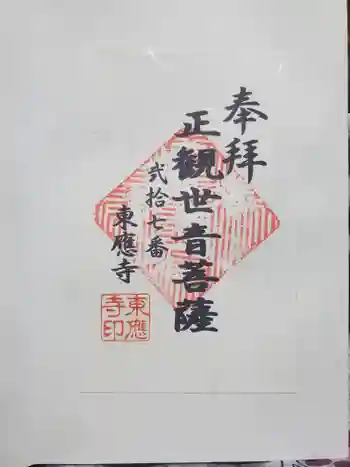 奉拝
正観世音菩薩
弐拾七番
東應寺
東應
寺印